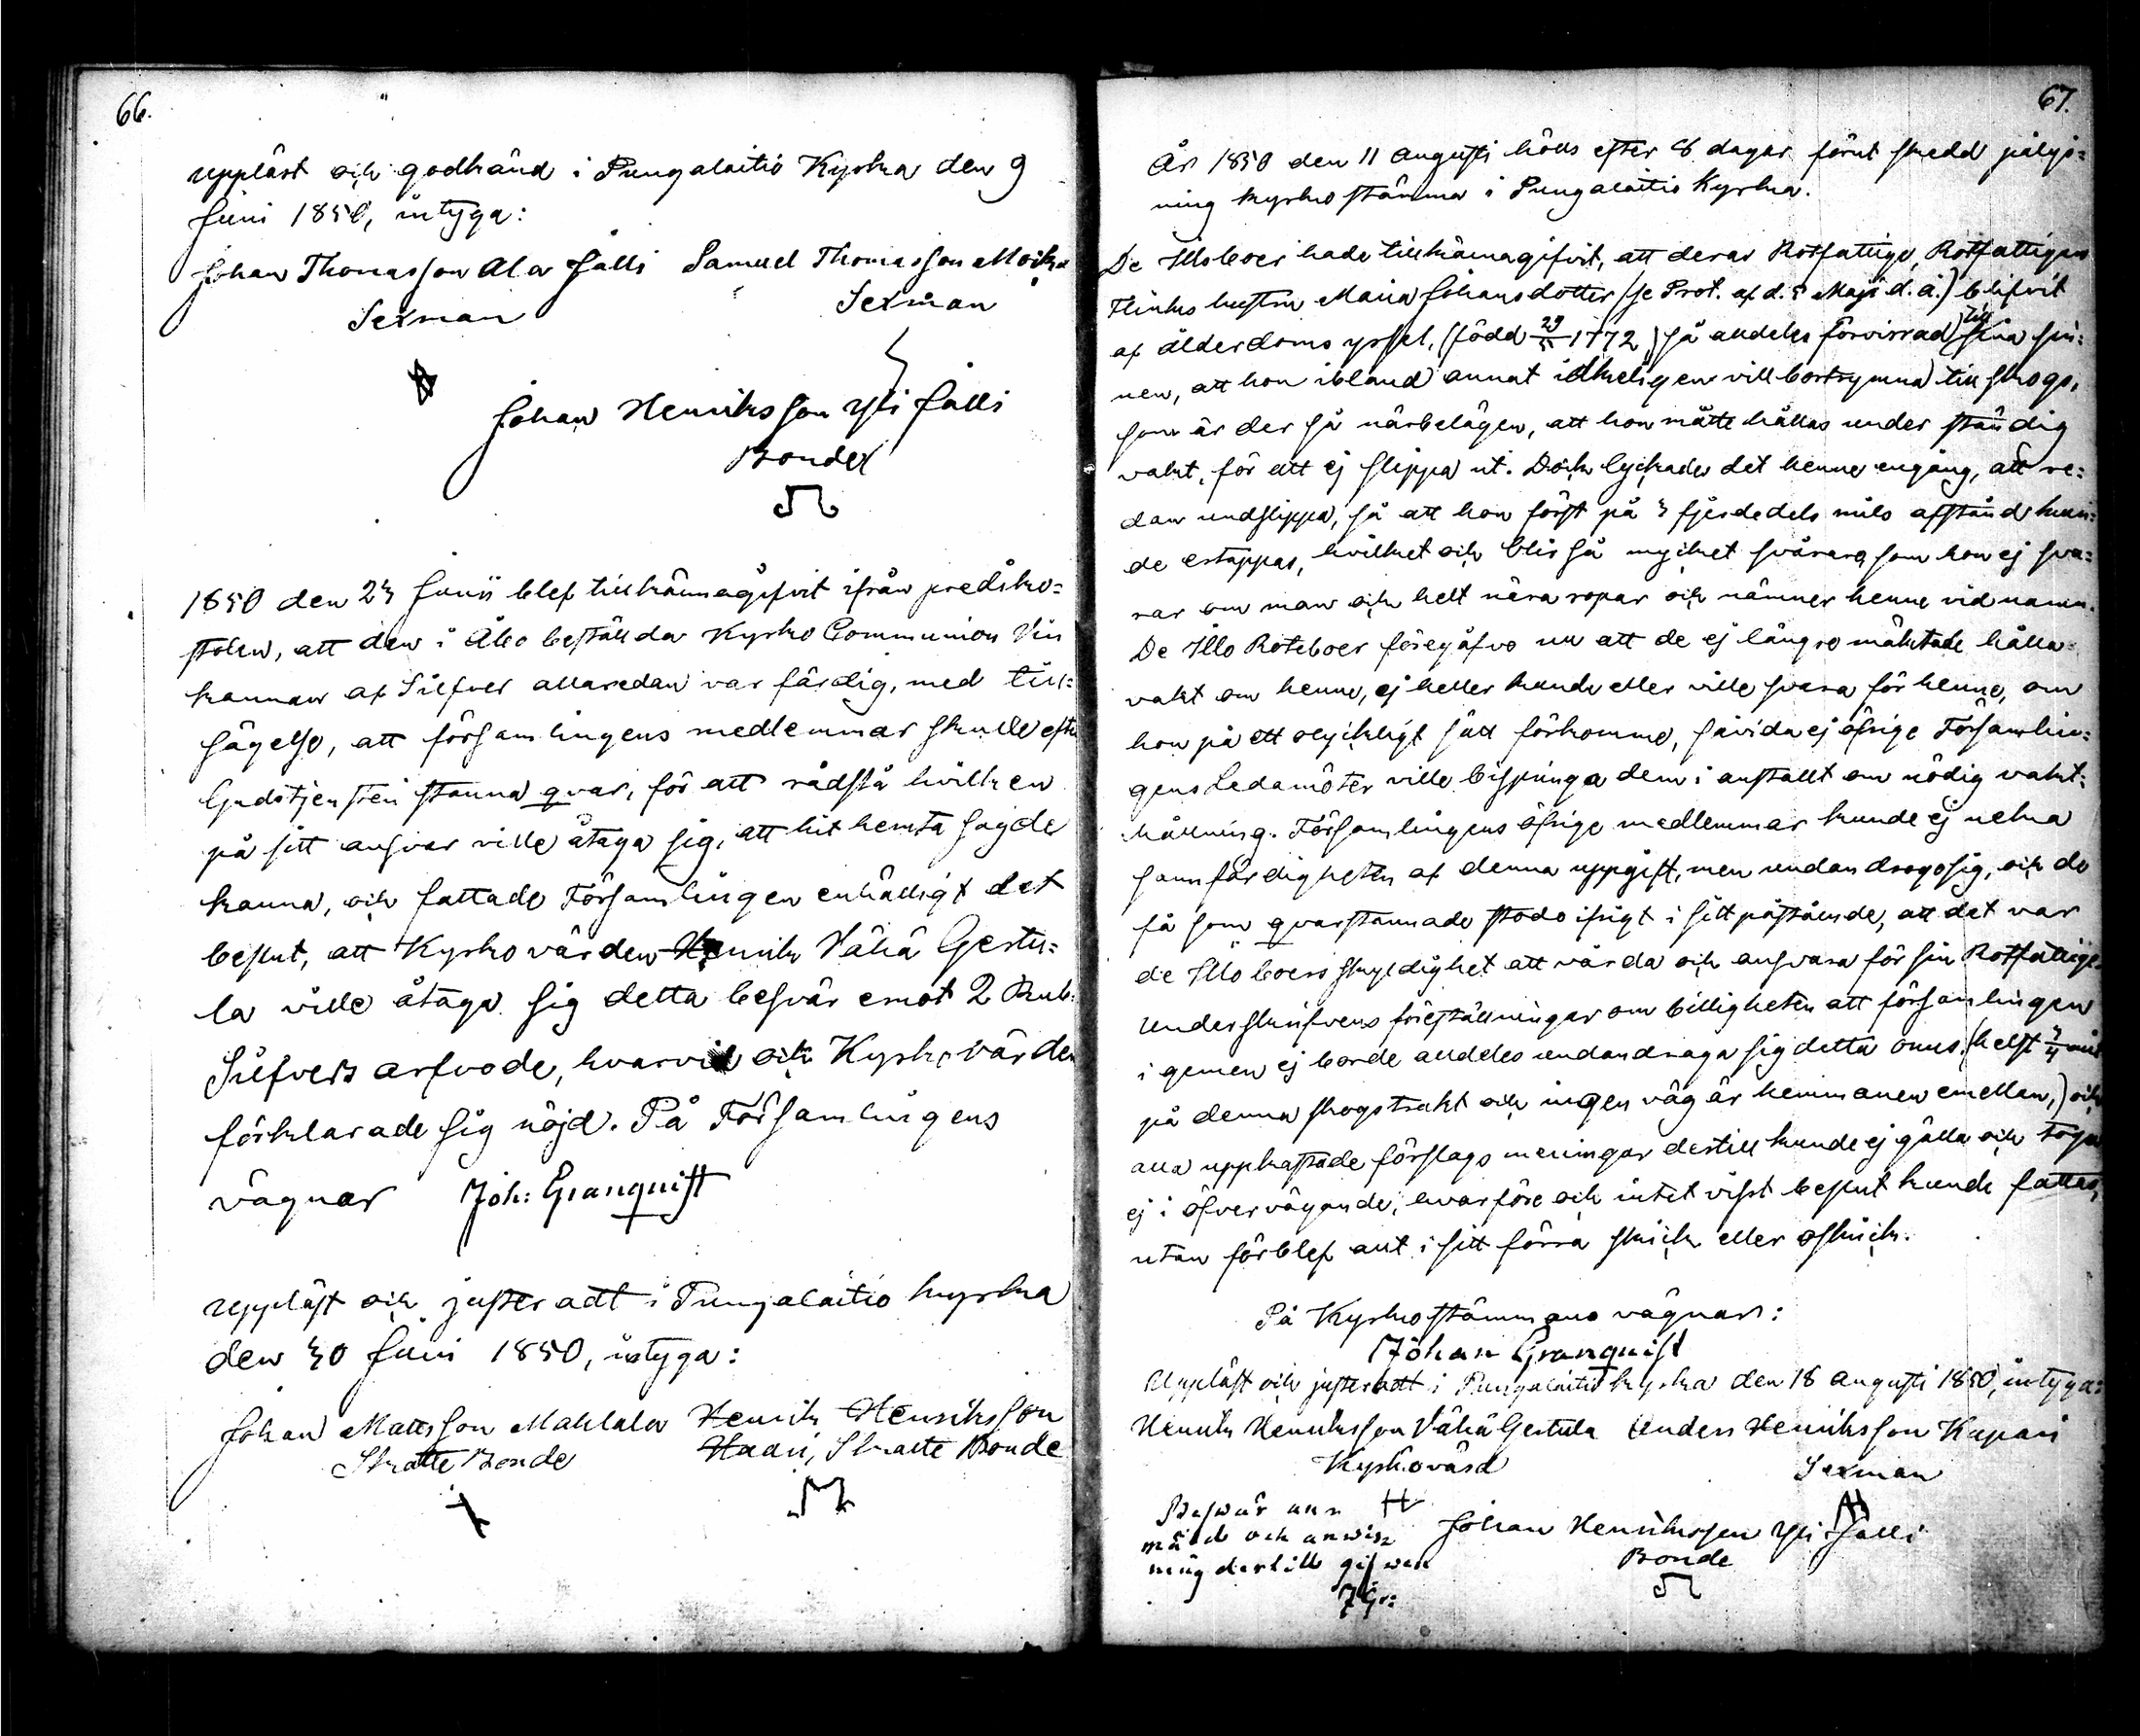 66.
uppläst och godkänd i Pungalaitio Kyrka den 9
Junii 1850, intyga:
Johan Thomasson Ala Jälli Samuel Thomasson Moika
Sexman Sexman
Johan Henriksson Yli Jälli
Bonde
1850 den 23 Junii blef tillkännagifvit ifrån prediko=
stolen, att den i Åbo beställda Kyrko Communion Vin
kannan af Silfver allaredan var färdig, med till=
sägelse, att församlingens medlemmar skulle efter
Gudstjensten stanna qvar, för att rådslå hvilken
på sitt ansvar ville åtaga sig, att hit hemta sagde
kanna, och fattade Församlingen enhälligt det
beslut, att Kyrkovärden Henrik Vähä Gertu=
la ville åtaga sig detta besvär emot 2 Rub.
Silfvers arfvode, hvarvid och Kyrkovärden
förklarade sig nöjd. På Församlingens
vägnar Joh: Granquist
Uppläst och justeradt i Pungalaitio kyrka
den 30 Juni 1850, intyga:
Johan Mattsson Mahlala Henrik Henriksson
Skatte Bonde Haari, Skatte Bonde
67.
År 1850 den 11 Augusti hölls efter 8 dagar förut skedd pålys=
ning kyrkostämma i Pungalaitio Kyrka.
De Illoboer hade tillkännagifvit, att deras Rotfattige, Rotfattigen
Flinks hustru Maria Johansdotter (se Prot. af d. 5 Maji d. å.) blifvit
af ålderdoms yssel, (född 29/5 1772) så alldeles förvirrad till sina sin=
nen, att hon ibland annat idkeligen vill bortrymma till skogs,
som är der så närbelägen, att hon måtte hållas under ständig
vakt, för att ej slippa ut. Dock lyckades det henne engång, att re=
dan undslippa, så att hon först på 3 fjerdedels mils afstånd kun=
de ertappas, hvilket och blir så mycket svårare som hon ej sva=
rar om man och helt nära ropar och nämner henne vid namn.
De Illo Roteboer föregåfvo nu att de ej längre mäktade hålla
vakt om henne, ej heller kunde eller ville svara för henne, om
hon på ett olyckligt sätt förkomme, såvida ej öfrige Församlin=
gens Ledamöter ville bispringa dem i anstallt om nödig vakt=
hållning. Församlingens öfrige medlemmar kunde ej neka
sannfärdigheten af denna uppgift, men undandrogo sig, och de
få som qvarstannade stodo ifrigt i sitt påstående, att det var
de Illoboers skyldighet att vårda och ansvara för sin Rotfattige.
Underskrifvens föreställningar om billigheten att församlingen
i gemen ej borde alldeles undandraga sig detta onus, (helst 3/4 mil
på denna skogstrakt och ingen väg är hemmanen emellan,) och
alla uppkastade förslags meningar dertill kunde ej gälla och togos
ej i öfvervägande, hvarföre och intet visst beslut kunde fattas,
utan förblef allt i sitt förra skick eller oskick.
På Kyrkostämmans vägnar:
Johan Granquist
Uppläst och justeradt i Pungalaitio kyrka den 18 Augusti 1850, intyga:
Henrik Henriksson Vähä Gertula Anders Henriksson Kupari
Kyrkovärd Sexman
Johan Henriksson Yli Jälli
Bonde
Beswär an
mäld och anwis
ning dertill gifwen